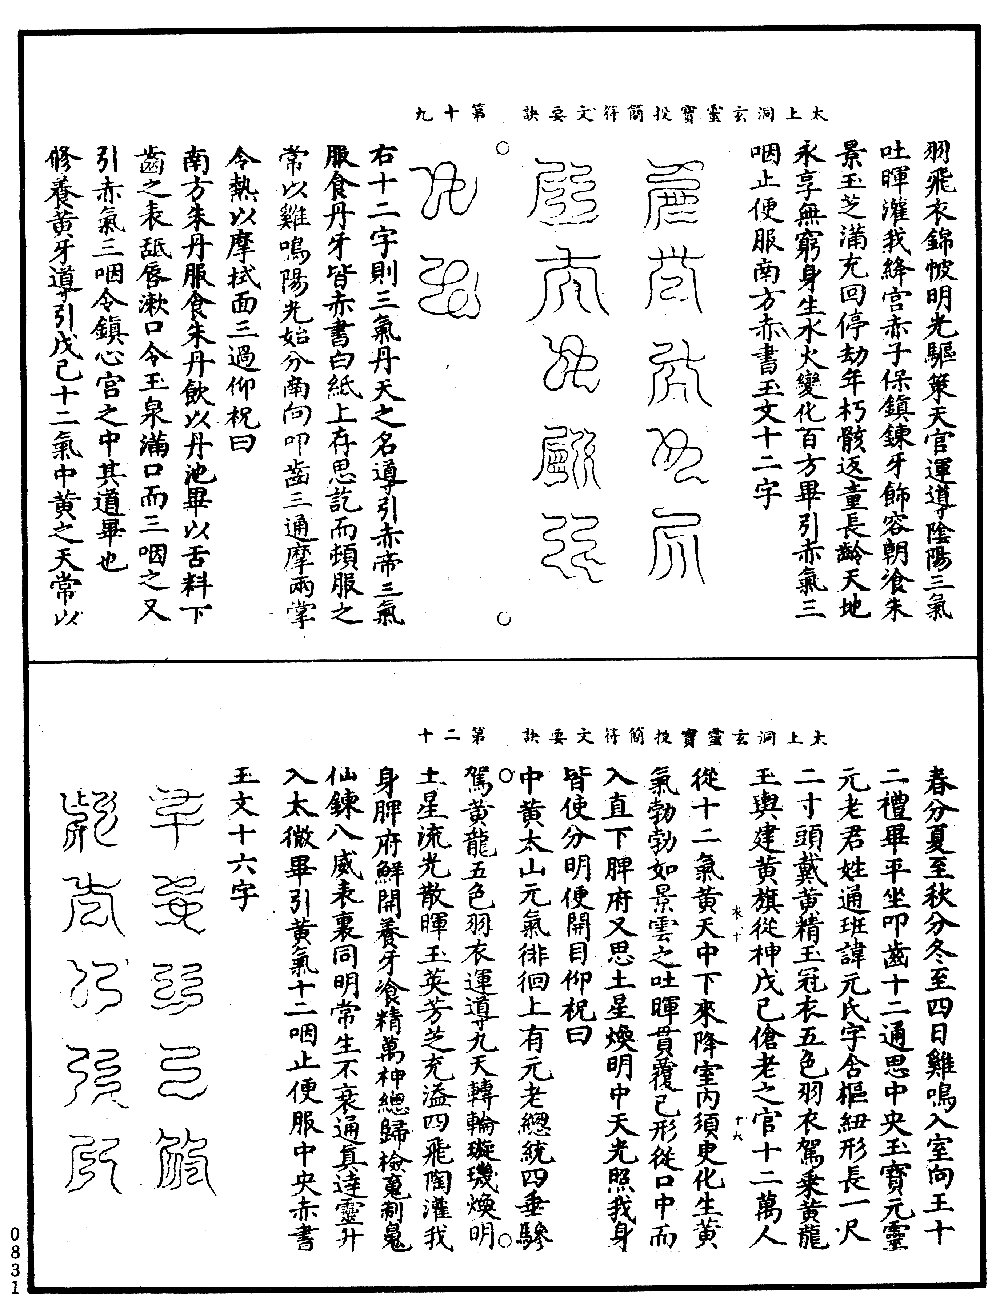 太上洞玄靈寶投簡符文要訣　第十九
羽飛衣錦帔明光驅策天官運導陰陽三氣
吐暉灌我絳宮赤子保鎮鍊牙飾容朝飡朱
景玉芝滿充回停劫年朽骸返童長齡天地
永享無窮身生水火變化百方畢引赤氣三
咽止便服南方赤書玉文十二字
右十二字則三氣丹天之名導引赤帝三氣
服食丹牙皆赤書白紙上存思訖而頓服之
常以雞鳴陽光始分南向叩齒三通摩兩掌
令熱以摩拭面三過仰祝曰
南方朱丹服食朱丹飲以丹池畢以舌料下
齒之表舐唇漱口令玉泉滿口而三咽之又
引赤氣三咽令鎮心宮之中其道畢也
修養黃牙導引戊己十二氣中黃之天常以
太上洞玄靈寶投簡符文要訣　第二十
春分夏至秋分冬至四日雞鳴入室向王十
二禮畢平坐叩齒十二通思中央玉寶元靈
元老君姓通班諱元氏字含樞紐形長一尺
二寸頭戴黃精玉冠衣五色羽衣駕乘黃龍
玉輿建黃旗從神戊己傖老之官十二萬人
衣十
十六
從十二氣黃天中下來降室內須臾化生黃
氣勃勃如景雲之吐暉貫覆己形從口中而
入直下脾府又思土星煥明中天光照我身
皆使分明便開目仰祝曰
中黃太山元氣徘徊上有元老總統四垂驂
駕黃龍五色羽衣運導九天轉輪璇璣煥明
土星流光散暉玉英芳芝充溢四飛陶灌我
身脾府鮮開養牙飡精萬神總歸檢䰟制魄
仙鍊八威表裏同明常生不衰通真達靈升
入太微畢引黃氣十二咽止便服中央赤書
玉文十六字
0831